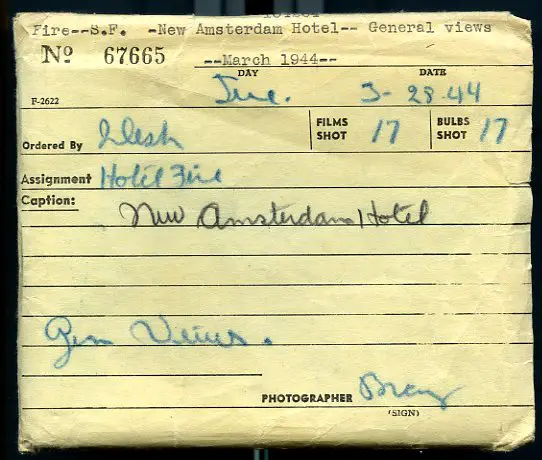 Fire--S.F. -New Amsterdam Hotel-- General views
Nº 67665 --March 1944--
DAY DATE
F-2622 Tue. 3-28-44
Ordered By Desk FILMS SHOT 17 BULBS SHOT 17
Assignment Hotel Fire
Caption:
New Amsterdam Hotel
Gen Views.
PHOTOGRAPHER
(SIGN)